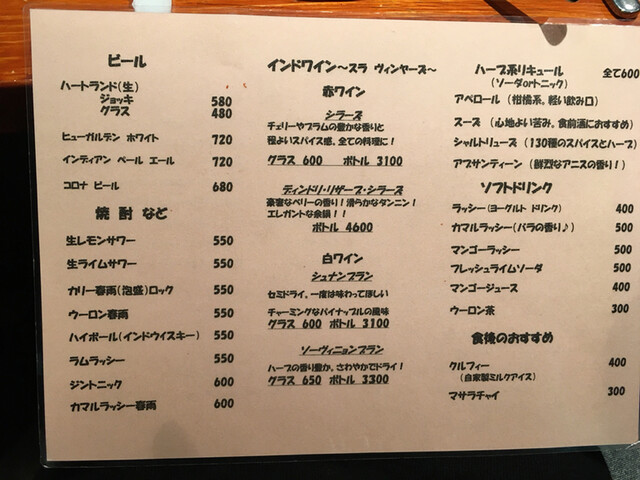 ビール
ハートランド(生)
ジョッキ 580
グラス 480
ヒューガルデン ホワイト 720
インディアン ペール エール 720
コロナ ビール 680
焼酎 など
生レモンサワー 550
生ライムサワー 550
カリー春雨(泡盛)ロック 550
ウーロン春雨 550
ハイボール(インドウイスキー) 550
ラムラッシー 550
ジントニック 600
カマルラッシー春雨 600
インドワイン～スラ ヴィンヤーズ～
赤ワイン
シラーズ
チェリーやプラムの豊かな香りと
程よいスパイス感、全ての料理に!
グラス 600 ボトル 3100
ディンドリ・リザーブ・シラーズ
豪密なベリーの香り!滑らかなタンニン!
エレガントな余韻!!
ボトル 4600
白ワイン
シュナンブラン
セミドライ、一度は味わってほしい
チャーミングなパイナップルの風味
グラス 600 ボトル 3100
ソーヴィニョンブラン
ハーブの香り豊か、さわやかでドライ!
グラス 650 ボトル 3300
ハーブ系リキュール 全て600
(ソーダorトニック)
アペロール (柑橘系。軽い飲み口)
スーズ (心地よい苦み。食前酒におすすめ)
シャルトリューズ (130種のスパイスとハーブ)
アブサンティーン (鮮烈なアニスの香り!)
ソフトドリンク
ラッシー(ヨーグルト ドリンク) 400
カマルラッシー(バラの香り♪) 500
マンゴーラッシー 500
フレッシュライムソーダ 500
マンゴージュース 400
ウーロン茶 300
食後のおすすめ
クルフィー 400
(自家製ミルクアイス)
マサラチャイ 300